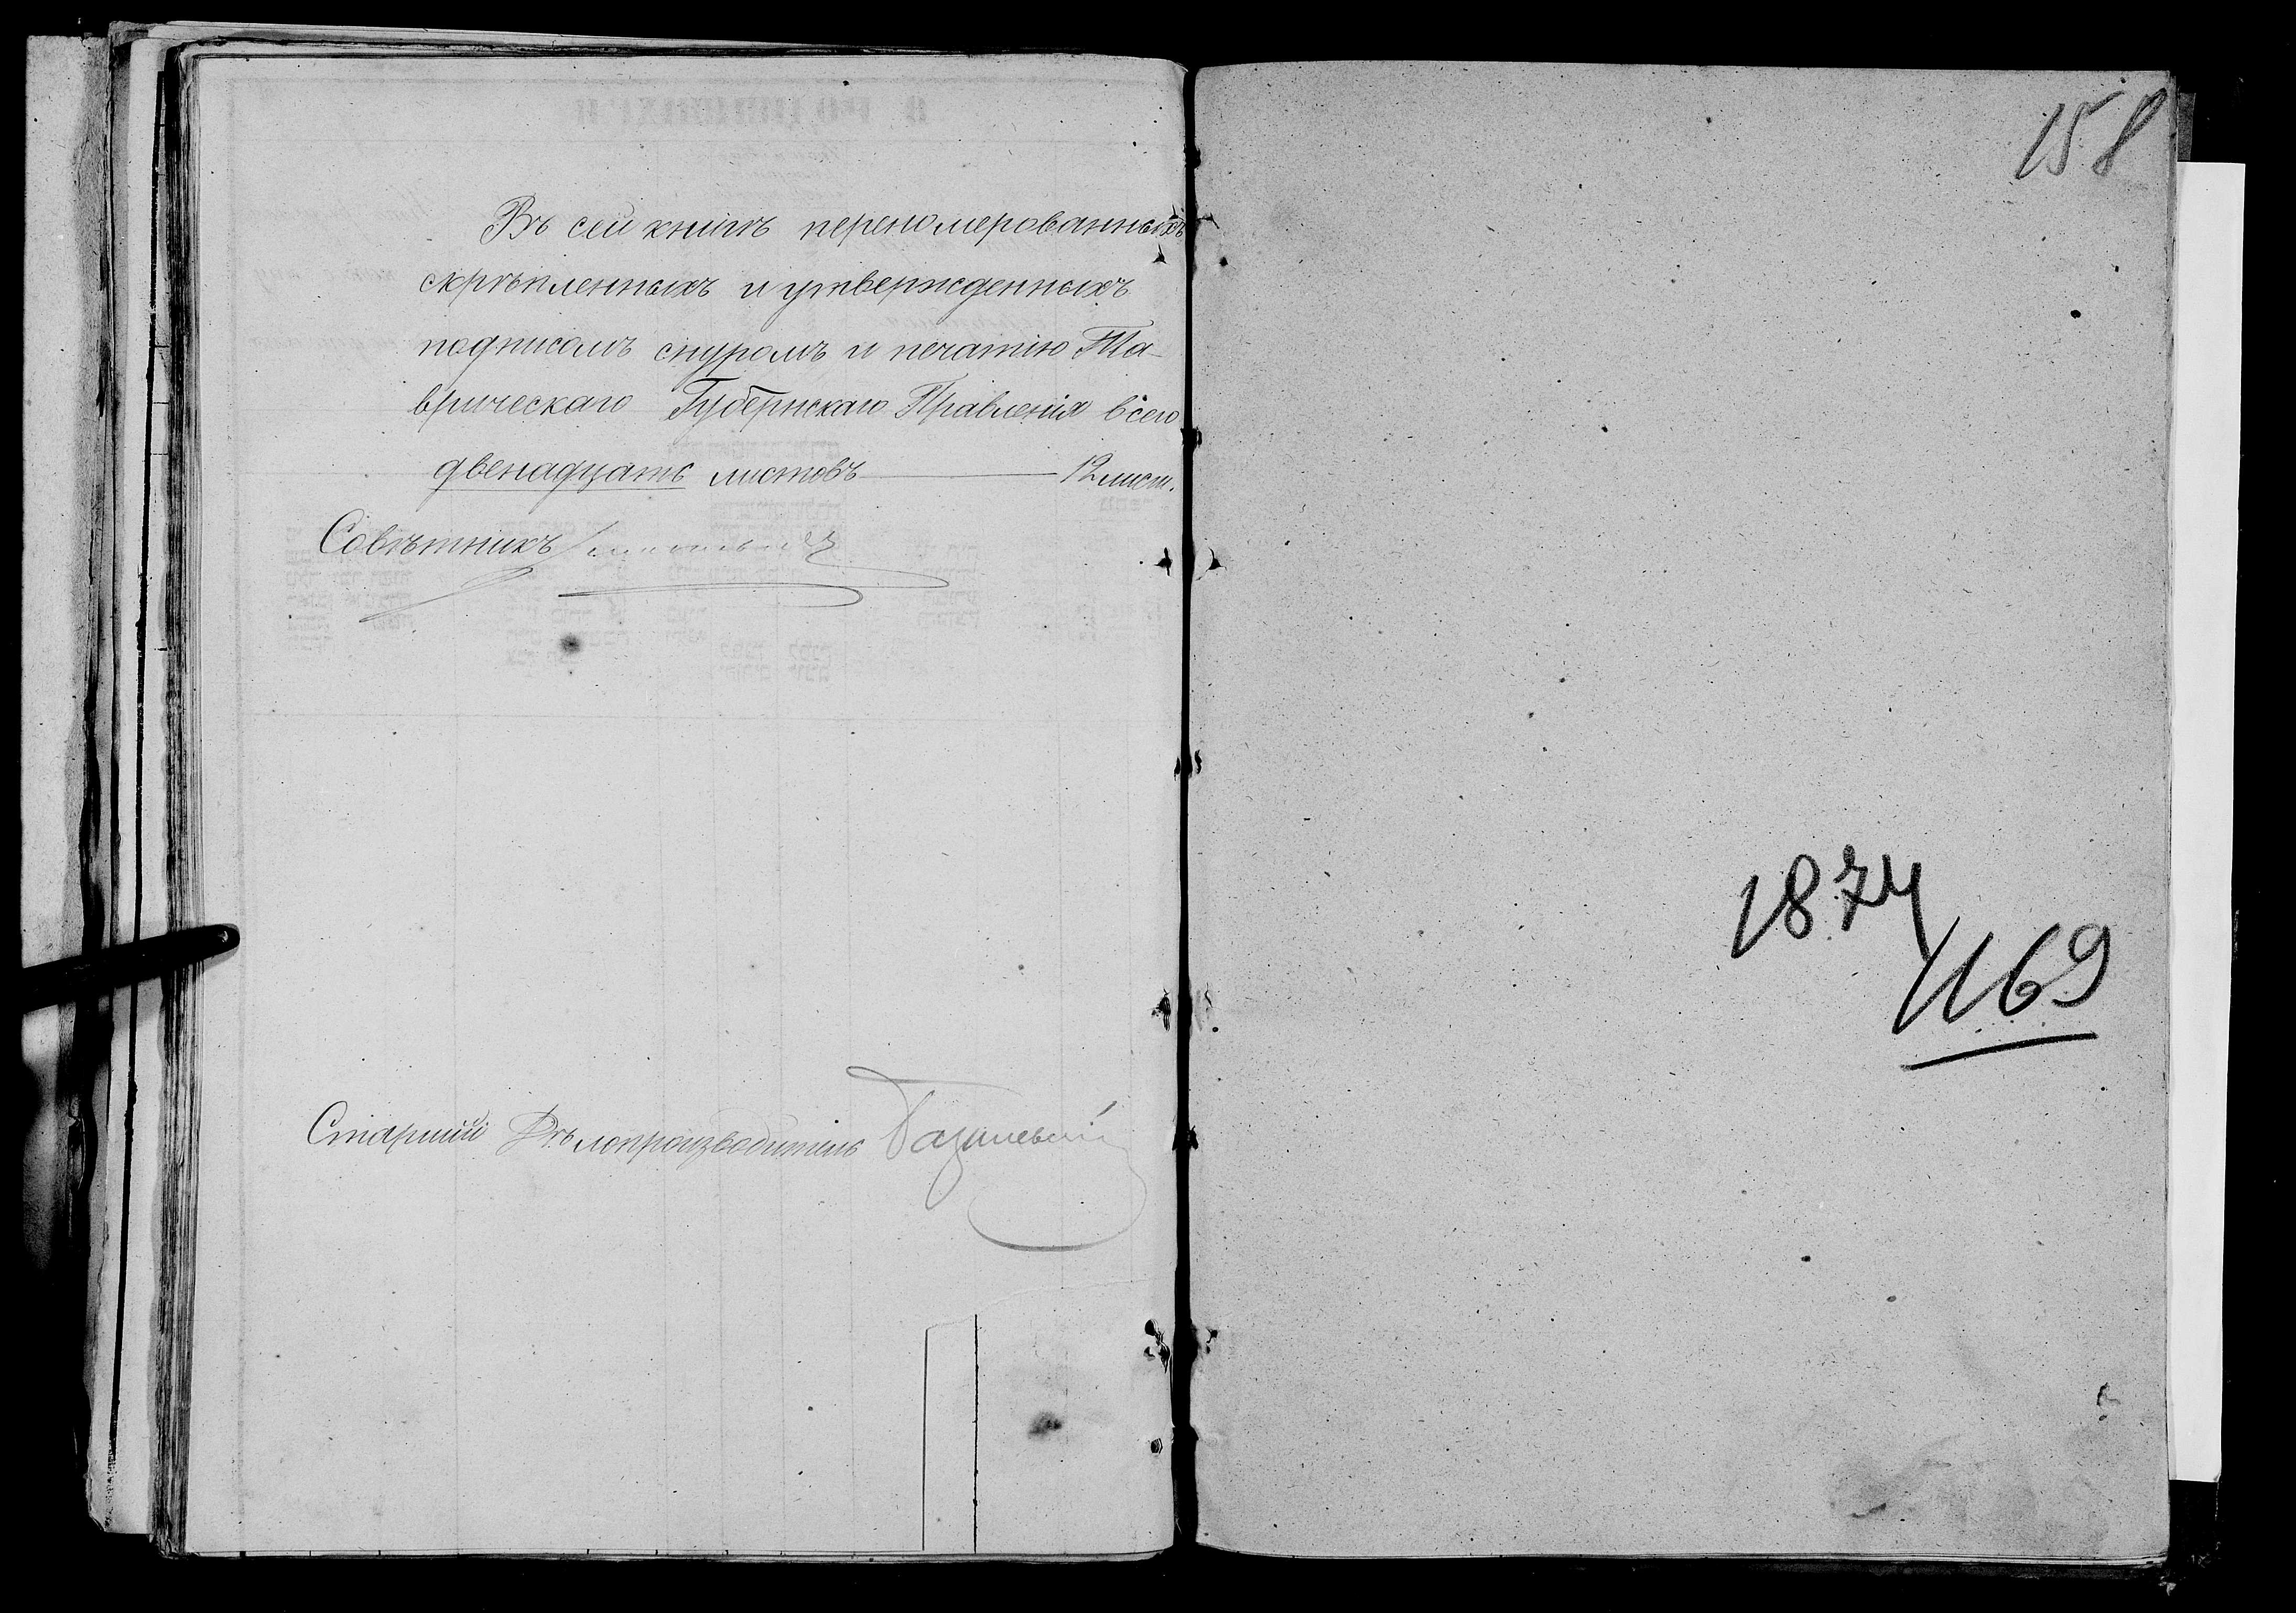 Въ сей книгѣ переномерованныхъ
скрѣпленныхъ и утвержденныхъ
подписомъ снуромъ и печатію Та-
врическаго Губернскаго Правленія всего
двенадцать листовъ 12 лист.
Совѣтникъ
Старшій Дѣлопроизводитель
158
1874
1169